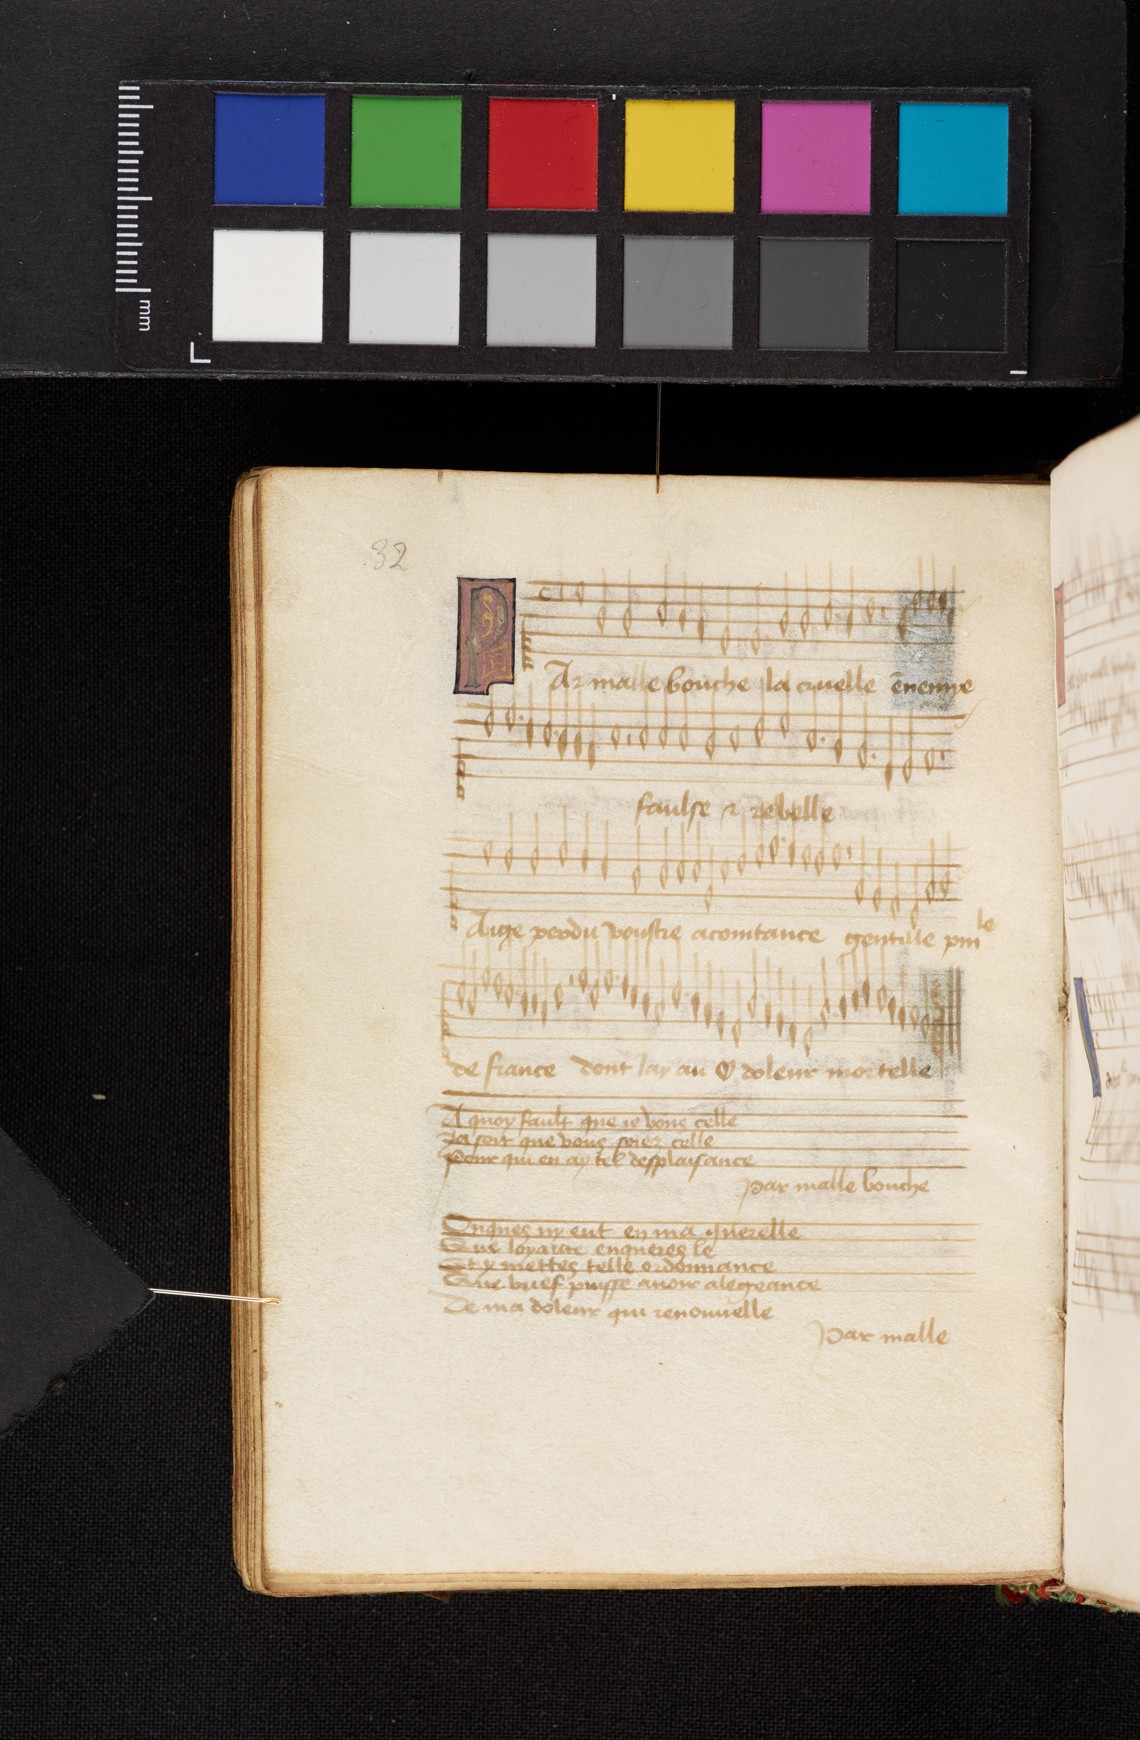 mm
32
PAr malle bouche la cruelle ēnemye
faulse & rebelle
Aige perdu voustre acointance gentille pm le
de france dont Jay au Q doleur mortelle
A quoy fault que ie vous celle
Ja soit que vous soiez celle
Pour qui en ay tel desplaisance
Par malle bouche
Onques ny eut en ma querelle
Que loyaute enqueres le
Et y mettes telle ordonnance
Que brief puisse auoir alegeance
De ma doleur qui renouuelle
Par malle